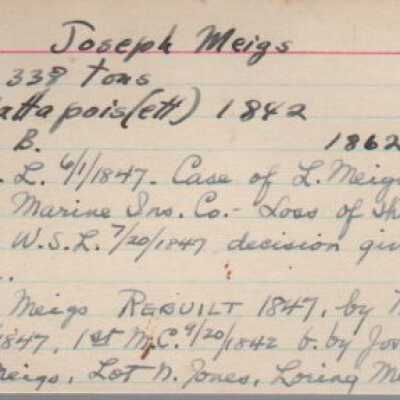 Joseph Meigs
338 Tons
attapois(ett) 1842
B. 1862
. L. 6/1/1847. Case of L. Meig
Marine Ins. Co. - Loss of sh
W.S.L. 7/20/1847 decision giv
..
Meigs REBUILT 1847, by
/1847, 1st M.C. 4/20/1842 b. by Jos
Meigs, Lot N. Jones, Loring Me